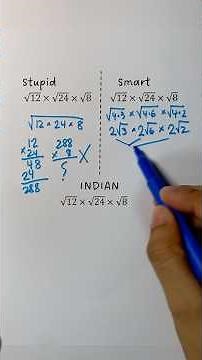 Stupid
√12 × √24 × √8
√12 × 24 × 8
12
×24
48
24
288
288
× 8
?
×
Smart
√12 × √24 × √8
√4·3 × √4·6 × √4·2
2√3 × 2√6 × 2√2
INDIAN
√12 × √24 × √8